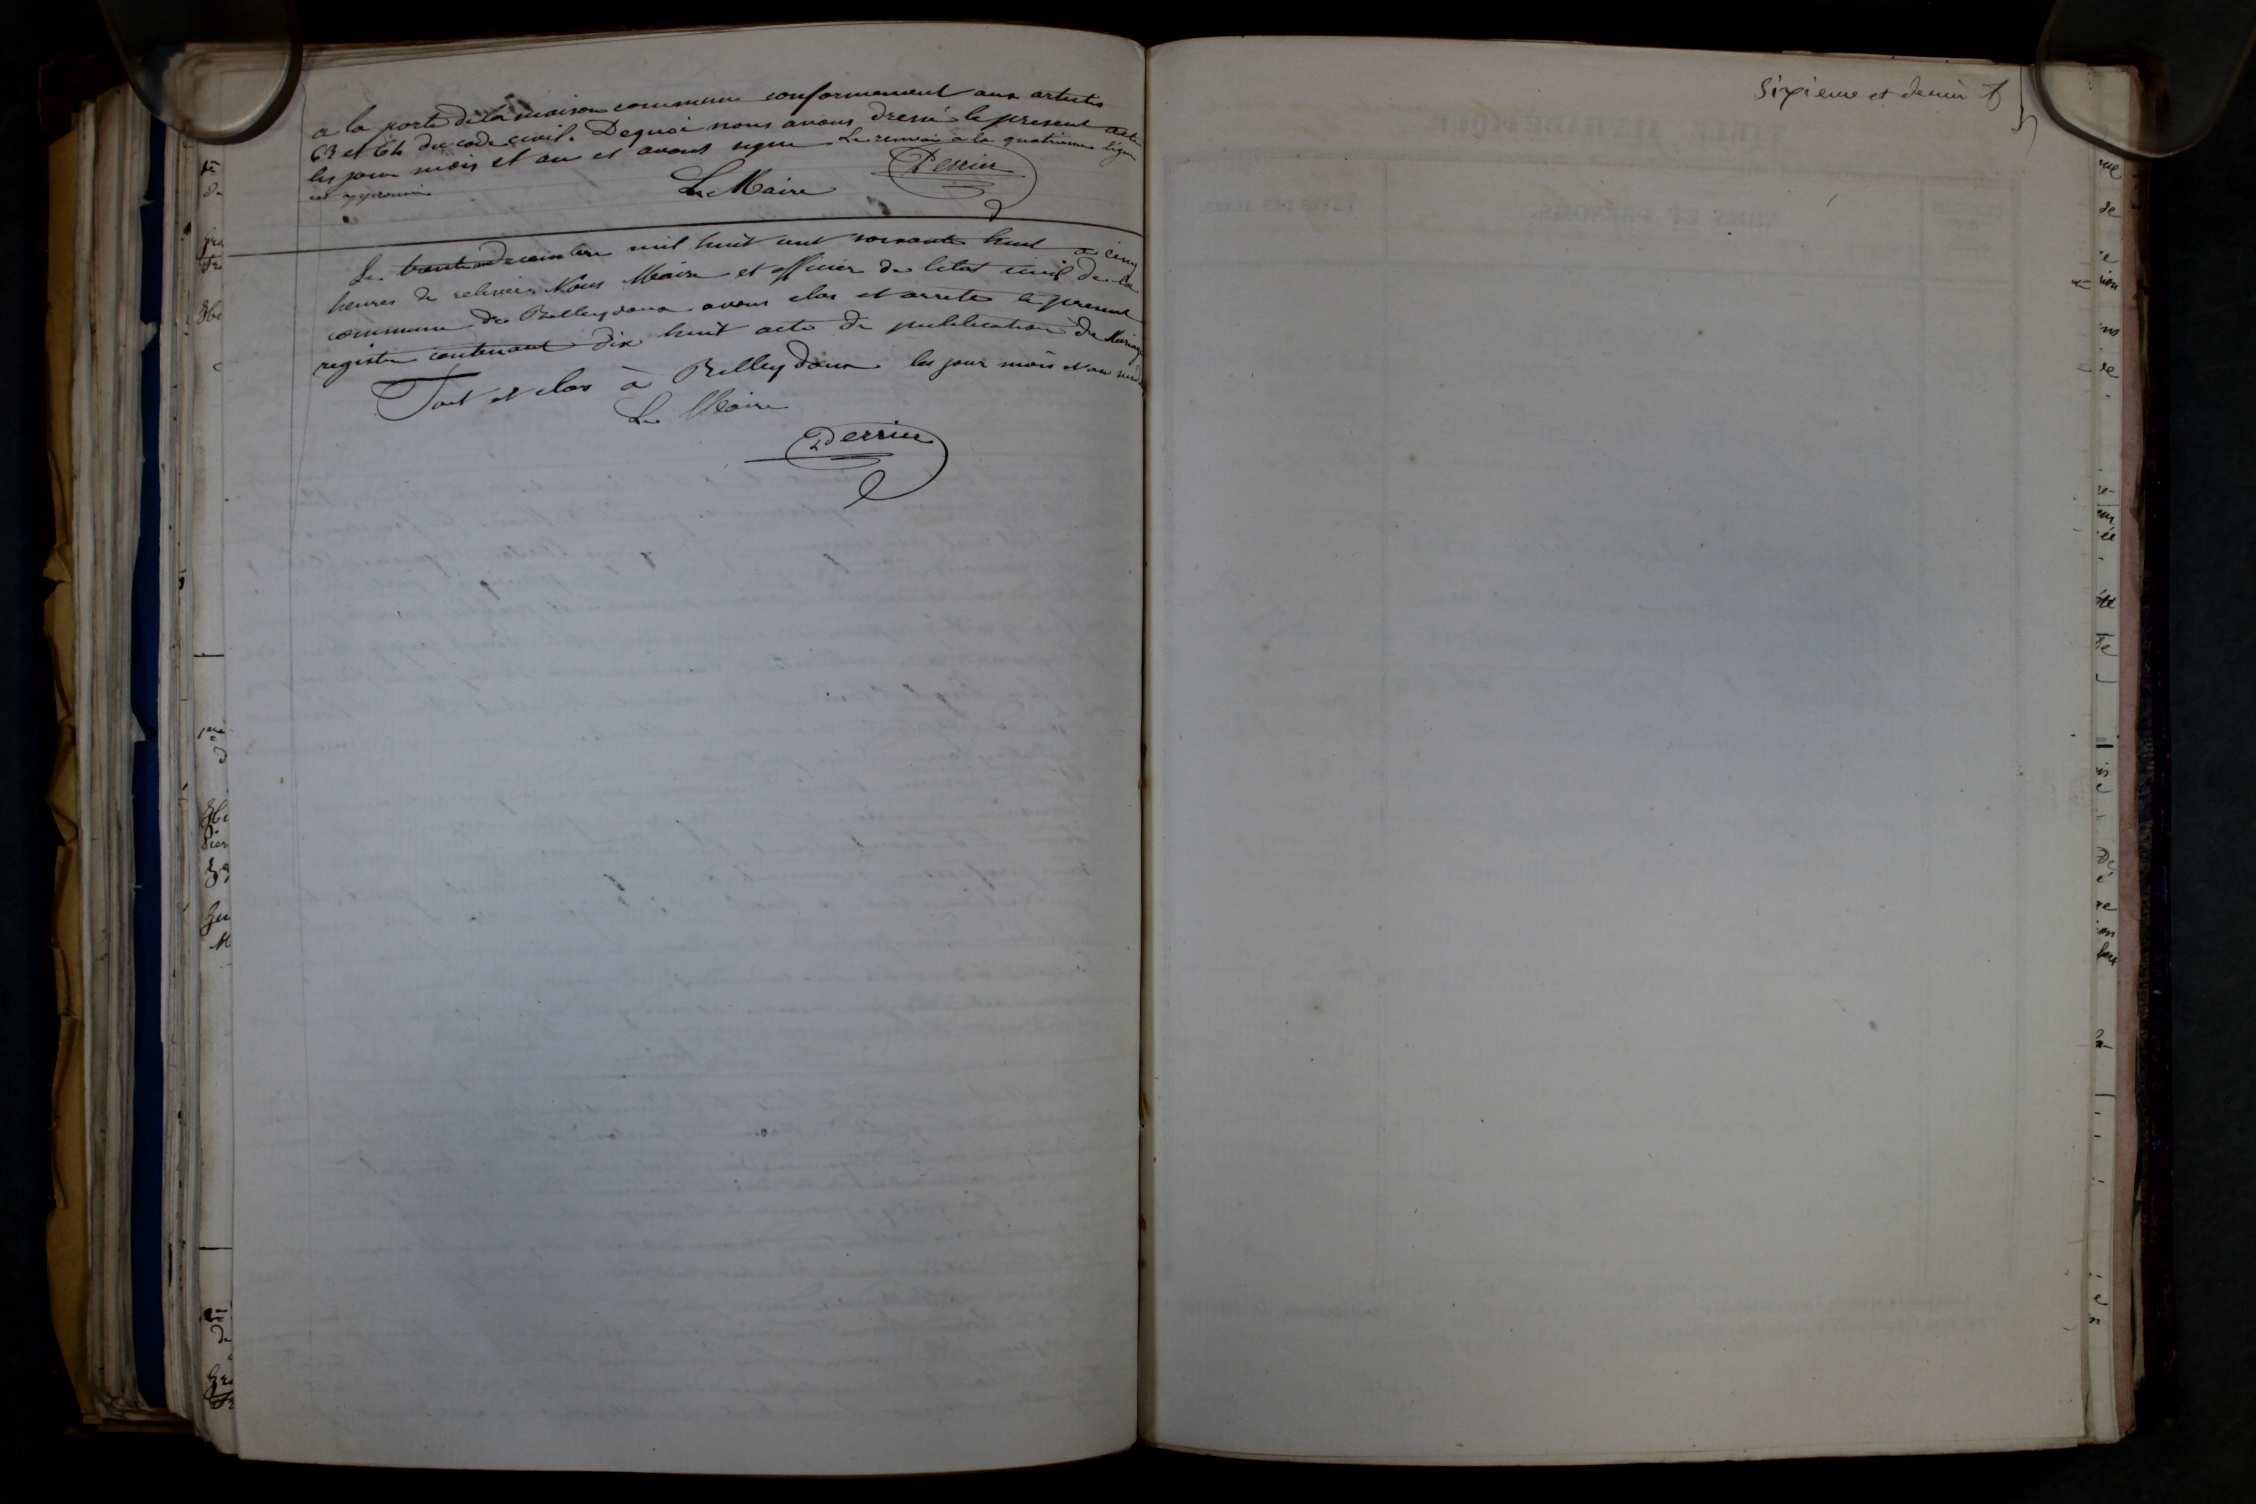 a la porte de la maison commune conformement aux articles
63 et 64 du code civil. Dequoi nous avons dressé le present acte
les jour mois et an et avons signé Le renvoi a la quatrieme ligne
est approuvé
Le Maire Perrier
Le trente un decembre mil huit cent soixante huit a cinq
heures de relevée Nous Maire et officier de letat civil de la
commune de Belleydoux avons clos et arreté le present
registre contenant dix huit acte de publication de Mariage
Fait et clos à Belleydoux les jour mois et an susdit
Le Maire
Perrier
Sixième et dernier